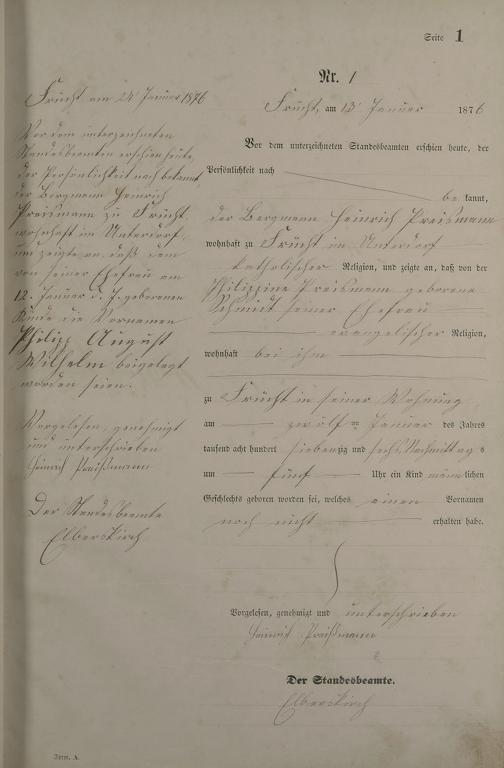 Seite 1
Nr. 1
Frücht, am 13 Januar 1876
Vor dem unterzeichneten Standesbeamten erschien heute, der
Persönlichkeit nach
be kannt,
der Bergmann Heinrich Preismann
wohnhaft zu Frücht im Unterdorf
katholischer Religion, und zeigte an, daß von der
Philippine Preismann geborene
Schmidt seiner Ehefrau
evangelischer Religion,
wohnhaft bei ihm
zu Frücht in seiner Wohnung
am zwölf ten Januar des Jahres
tausend acht hundert siebenzig und sechs Nachmittag s
um fünf Uhr ein Kind männlichen
Geschlechts geboren worden sei, welches einen Vornamen
noch nicht erhalten habe.
Vorgelesen, genehmigt und unterschrieben
Heinrich Preißmann
Der Standesbeamte.
Elberskirch
Frücht am 24 Januar 1876
Vor dem unterzeichneten
Standesbeamten erschien heute,
der Persönlichkeit nach bekannt,
der Bergmann Heinrich
Preismann zu Frücht,
wohnhaft im Unterdorf,
und zeigte an, daß dem
von seiner Ehefrau am
12. Januar d. J. geborenen
Kinde die Vornamen
Philipp August
Wilhelm beigelegt
worden seien.
Vorgelesen, genehmigt
und unterschrieben
Heinrich Preißmann
Der Standesbeamte
Elberskirch
Form. A.